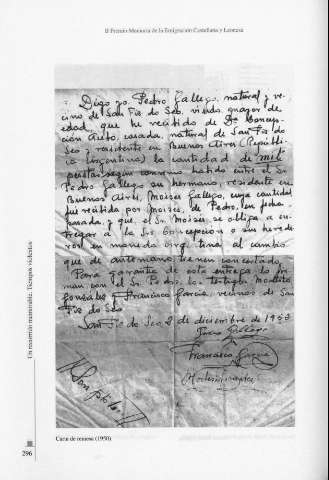 II Premio Memoria de la Emigración Castellana y Leonesa
Digo yo Pedro Gallego, natural y ve-
cino de San Fiz do Seo, viudo, mayor de
edad, que he recibido de Dª Concep-
ción Aira, casada, natural de San Fiz do
Seo y residente en Buenos Aires (Repúbli-
ca Argentina) la cantidad de mil
pesetas según convenio habido entre el Sr.
Pedro Gallego su hermano, residente en
Buenos Aires, Moisés Gallego, cuya cantidad
fue recibida por Moisés, de Pedro, en fecha
pasada, y que, el Sr. Moisés, se obliga a en-
tregar a la Sra Concepción o sus herede-
ros en moneda argentina al cambio
que de antemano tienen concertado.
Para garantía de esta entrega lo fir-
man con el Sr. Pedro, los testigos Modesto
González y Francisco García, vecinos de San
Fiz do Seo.
San Fiz do Seo, 2 de diciembre de 1950
Pedro Gallego
Francisco García
Modesto González
Un recuerdo memorable. Tiempos violentos
296
Carta de remesa (1950)